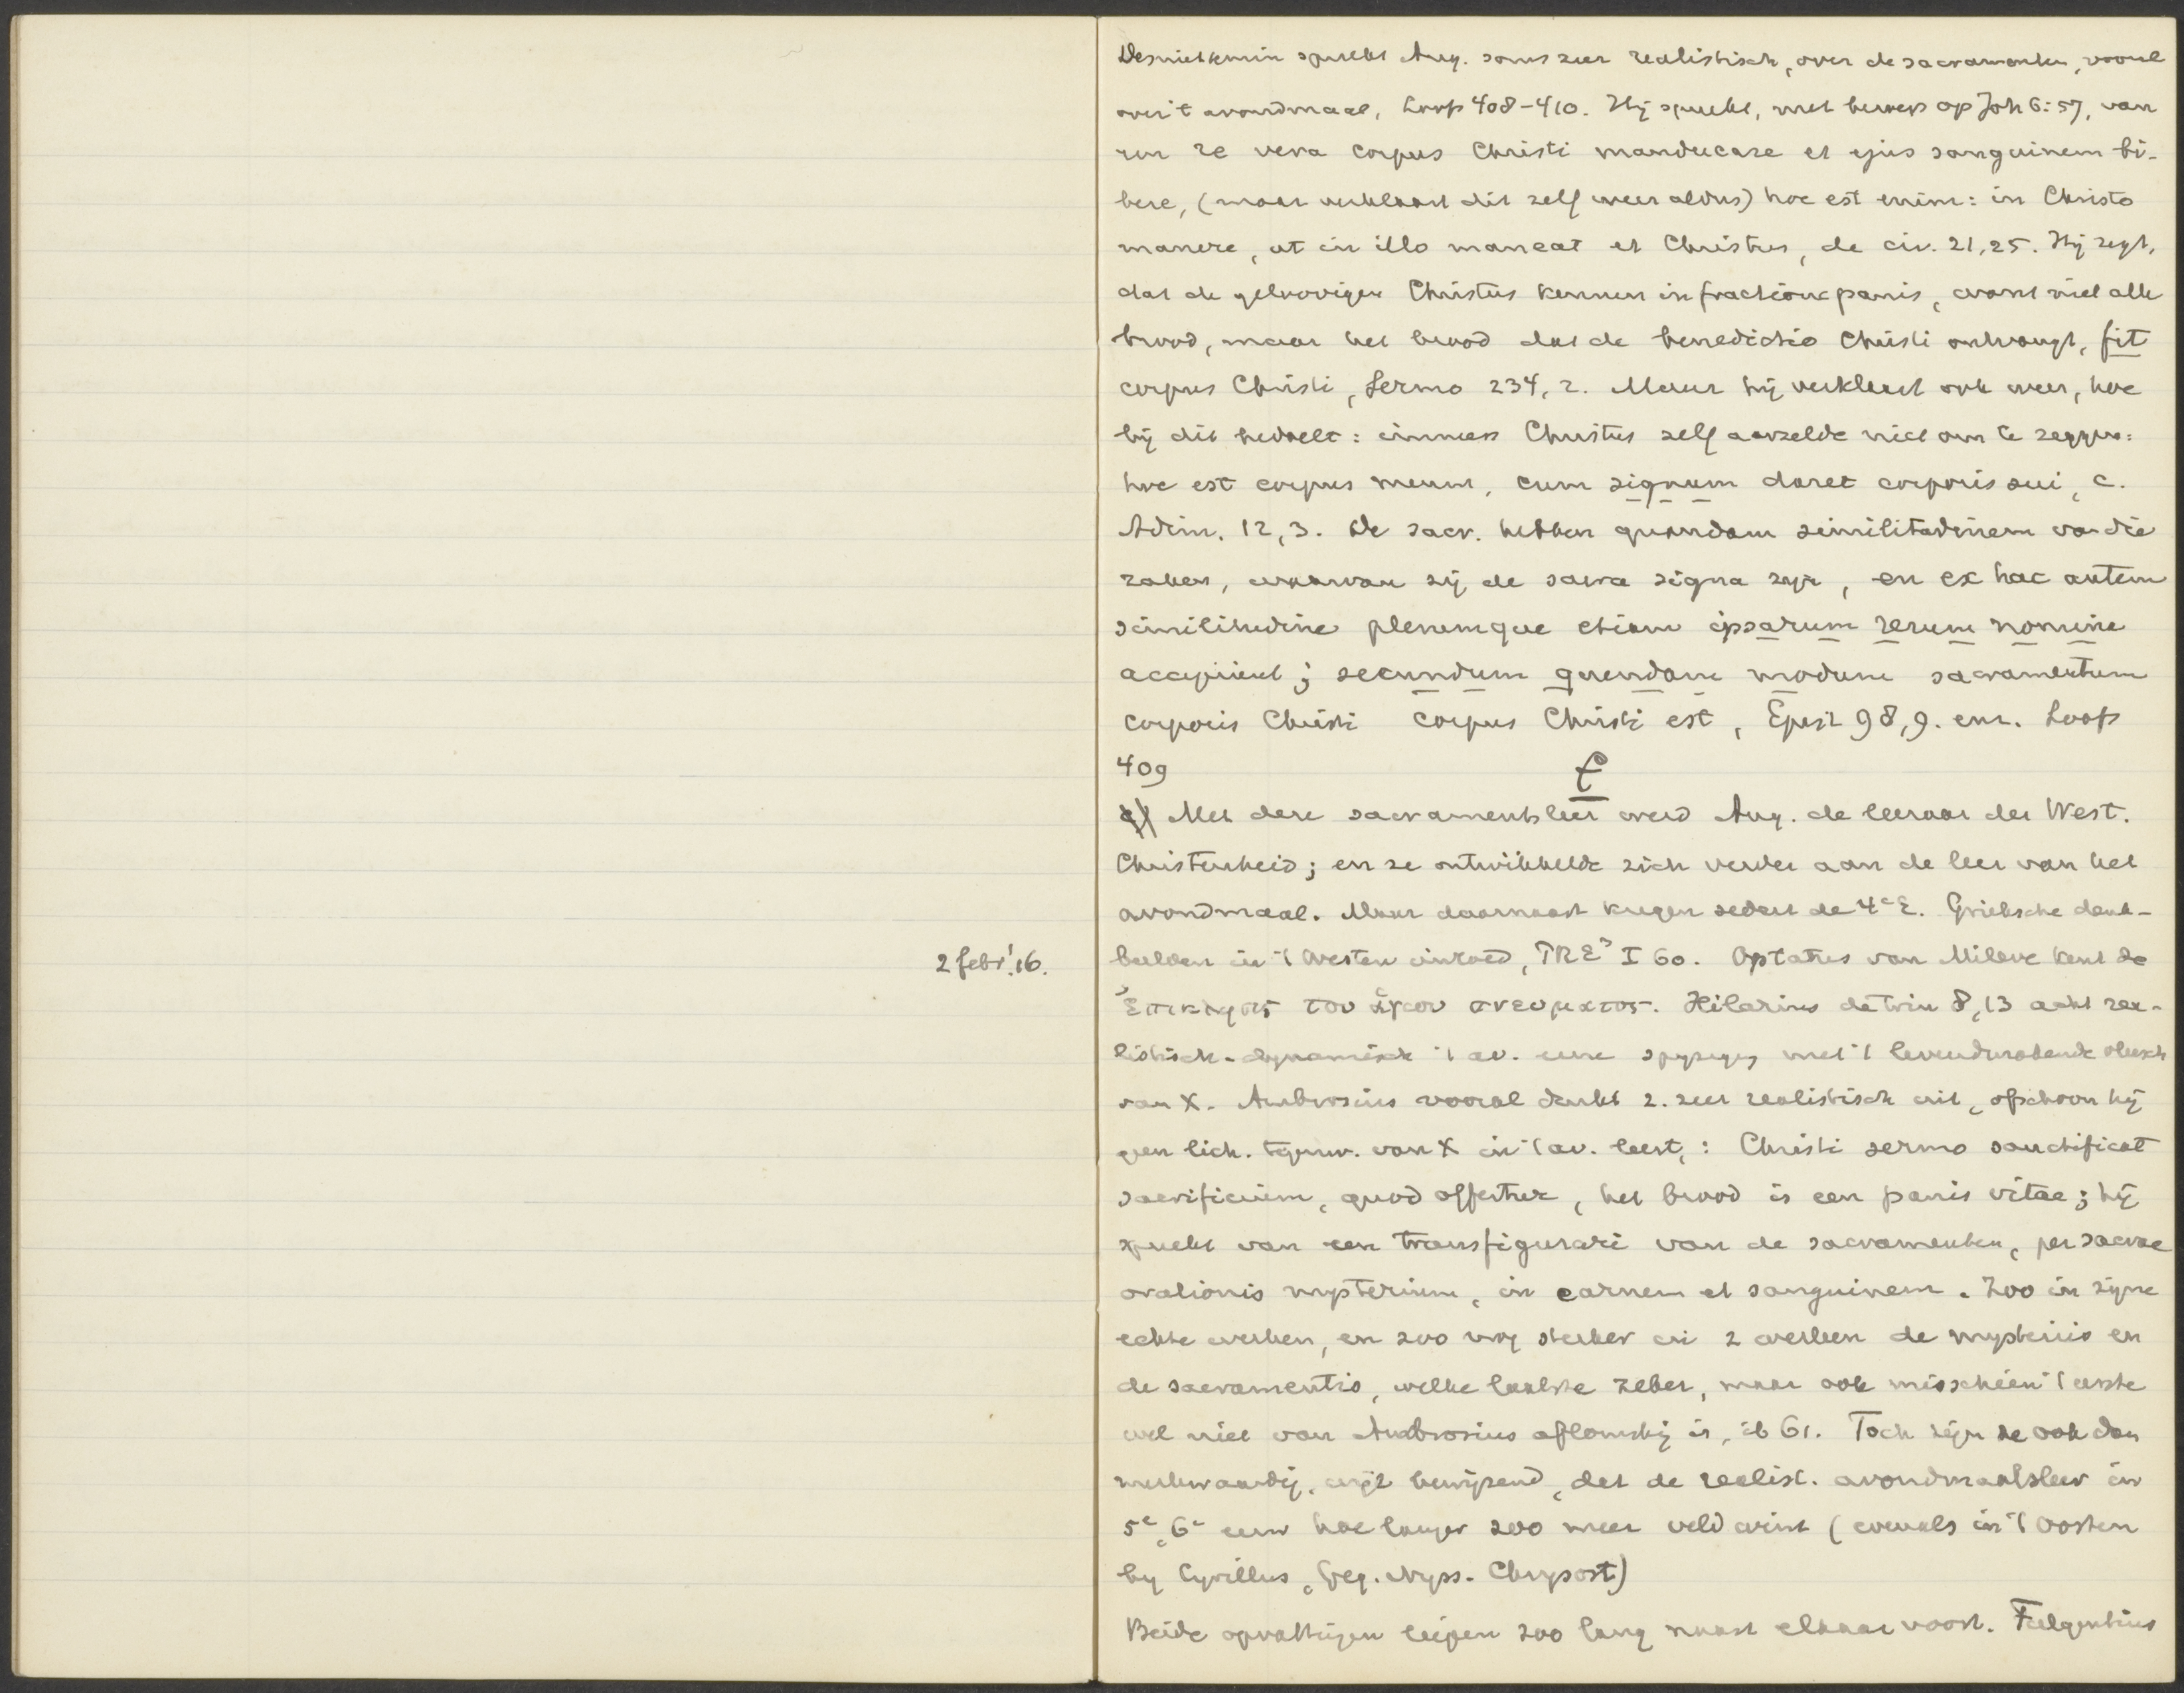 Desniettemin spreekt Aug. soms zeer realistisch, over de sacramenten, vooral
over 't avondmaal, Loofs 408-410. Hij spreekt, met beroep op Joh 6:57, van
een re vera corpus Christi manducare et ejus sanguinem bi-
bere, (maar verklaart dit zelf weer aldus) hoc est enim: in Christo
manere, ut in illo maneat et Christus, de civ. 21,25. Hij zegt,
dat de geloovigen Christus kennen in fractione panis, want niet alle
brood, maar het brood dat de benedictio Christi ontvangt, fit
corpus Christi, Sermo 234,2. Maar hij verklaart ook weer, hoe
hij dit bedoelt: immers Christus zelf aarzelde niet om te zeggen:
hoc est corpus meum, cum signum daret corporis sui, c.
Adim. 12,3. De sacr. hebben quandam similitudinem van die
zaken, waarvan zij de sacra signa zijn, en ex hac autem
similitudine plerumque etiam ipsarum rerum nomine
accipiunt; secundum quendam modum sacramentum
corporis Christi corpus Christi est, Epist 98,9. enz. Loofs
409
Met deze sacramentsleer werd Aug. de leeraar der West.
Christenheid; en ze ontwikkelde zich verder aan de leer van het
avondmaal. Maar daarnaast kregen sedert de 4e E. Grieksche denk-
2 febr! 16.
beelden in 't Westen invloed, PRE³ I 60. Optatus van Mileve kent de
Ἐπικλησις του ἁγιου πνευματος. Hilarius de trin 8,13 acht rea-
listisch-dynamisch 't av. eene spijziging met 't levendmakende vleesch
van X. Ambrosius vooral drukt z. zeer realistisch uit, ofschoon hij
geen lich. tegenw. van X in 't av. leert,: Christi sermo sanctificat
sacrificium, quod offertur, het brood is een panis vitae; hij
spreekt van een transfigurari van de sacramenten, per sacrae
orationis mysterium, in carnem et sanguinem. Zoo in zijne
echte werken, en zoo nog sterker in 2 werken de mysteriis en
de sacramentis, welke laatste zeker, maar ook misschien 't eerste
wel niet van Ambrosius afkomstig is, ib 61. Toch zijn ze ook dan
merkwaardig, wijl bewijzend, dat de realist. avondmaalsleer in
5e, 6e eeuw hoe langer zoo meer veld wint (evenals in 't Oosten
by Cyrillus, Greg. Nyss. Chrysost)
Beide opvattingen liepen zoo lang naast elkaar voort. Fulgentius